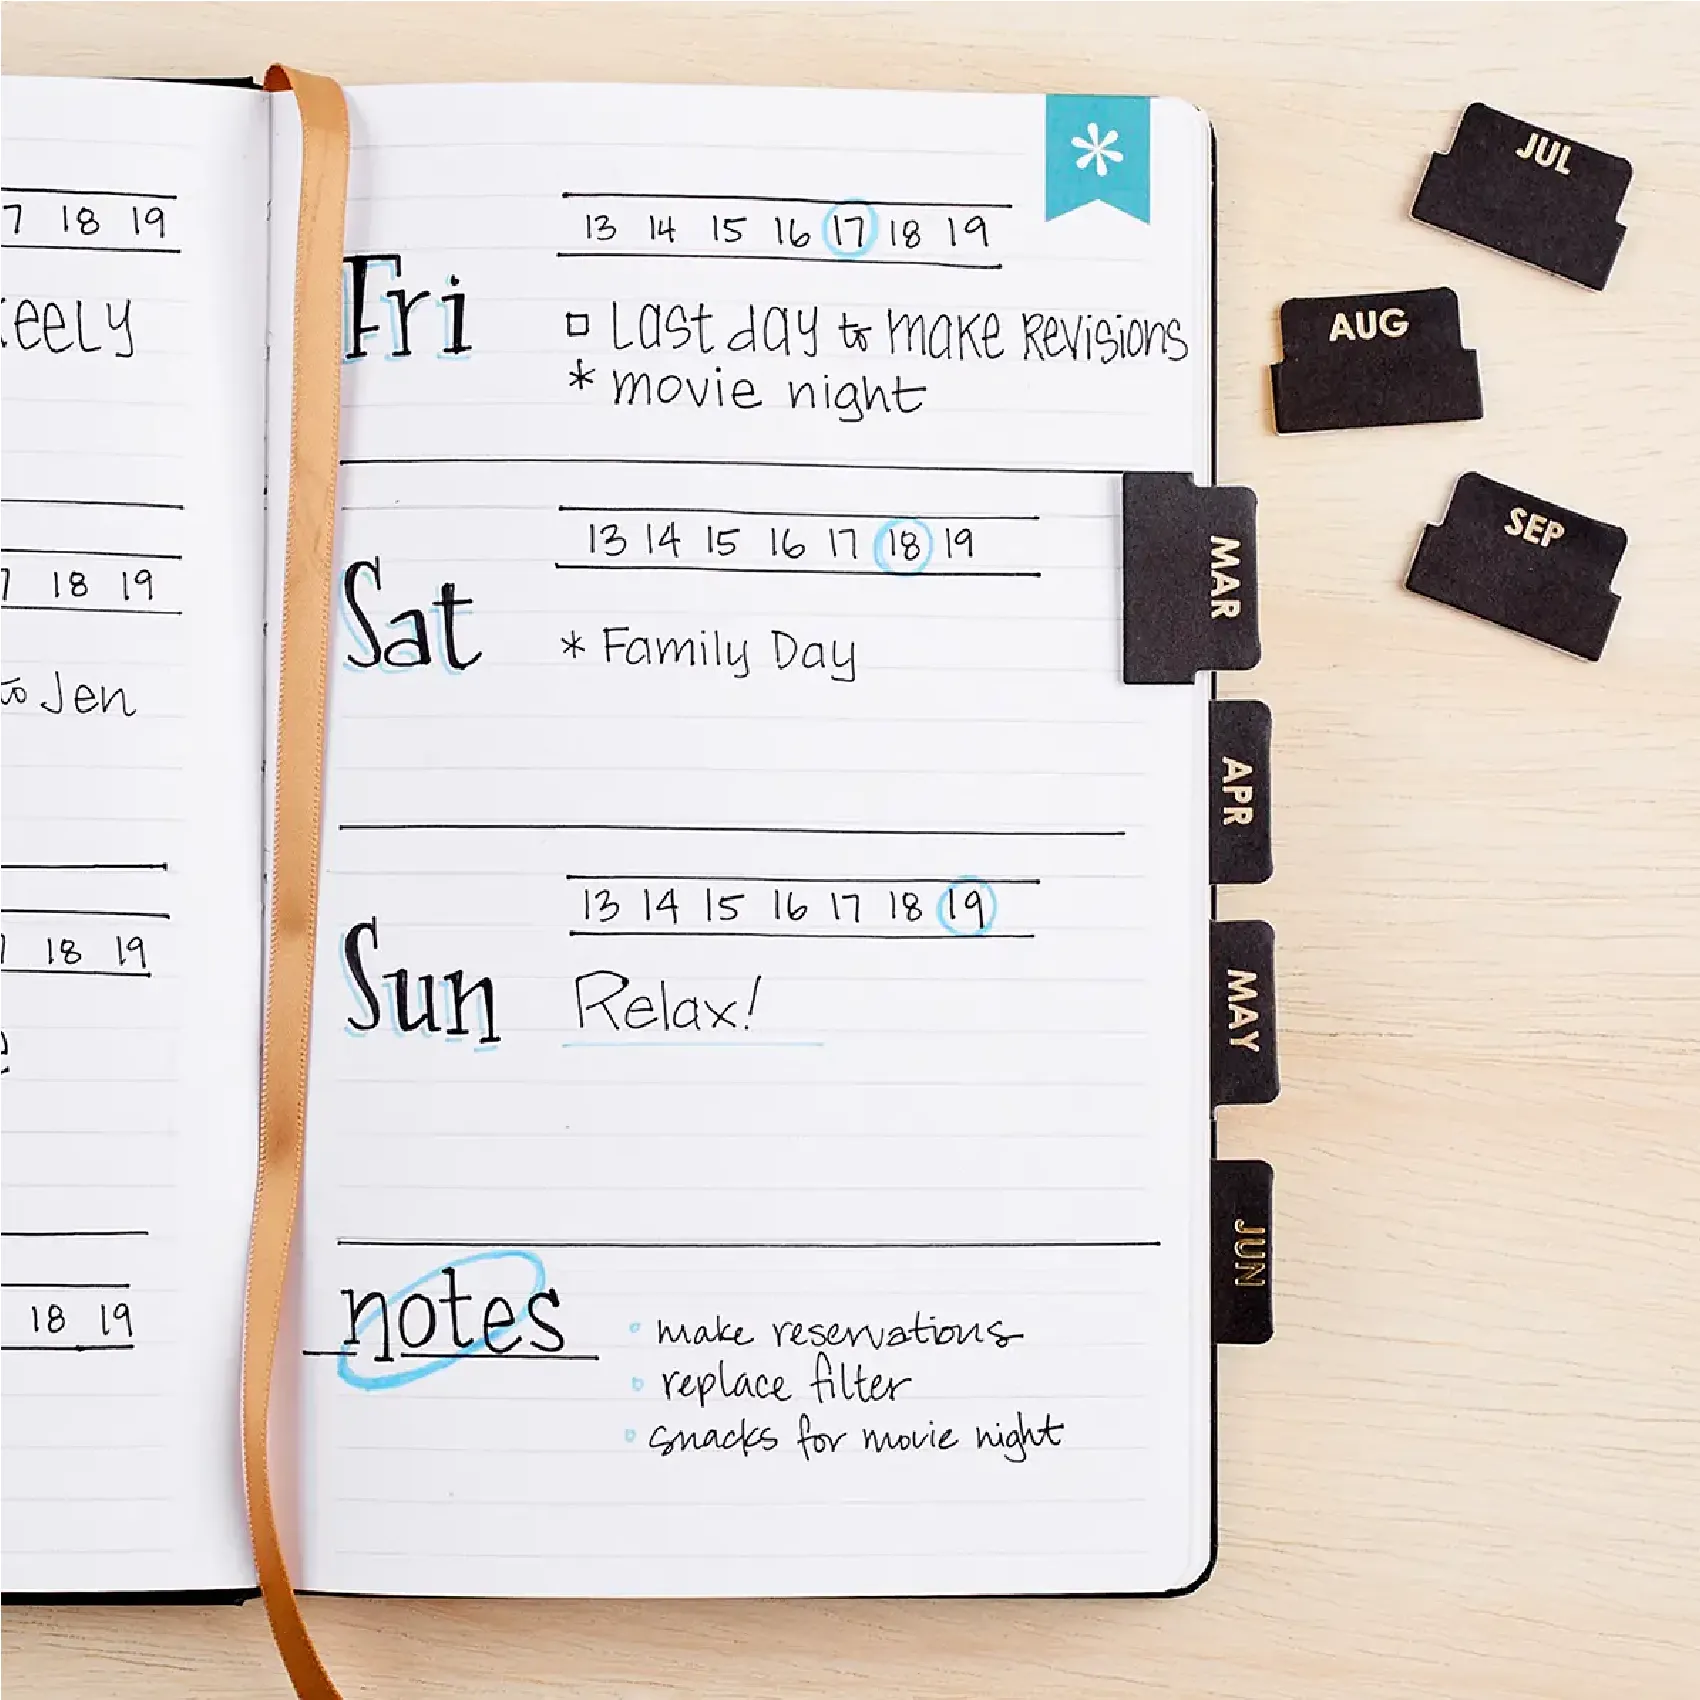 18 19
eely
18 19
to Jen
18 19
18 19
13 14 15 16 17 18 19
Fri
Last day to make Revisions
* movie night
13 14 15 16 17 18 19
Sat
* Family Day
13 14 15 16 17 18 19
Sun
Relax!
notes
make reservations
replace filter
snacks for movie night
MAR
APR
MAY
JUN
JUL
AUG
SEP